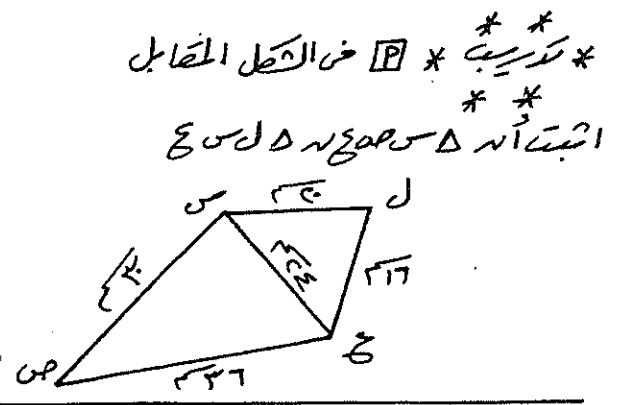 * تدريب * [أ] فى الشكل المقابل
اثبت أن △ س ص ع ~ △ ل س ع
ل
س
٢٠ سم
١٦ سم
٢٤ سم
٣٠ سم
ع
٣٦ سم
ص